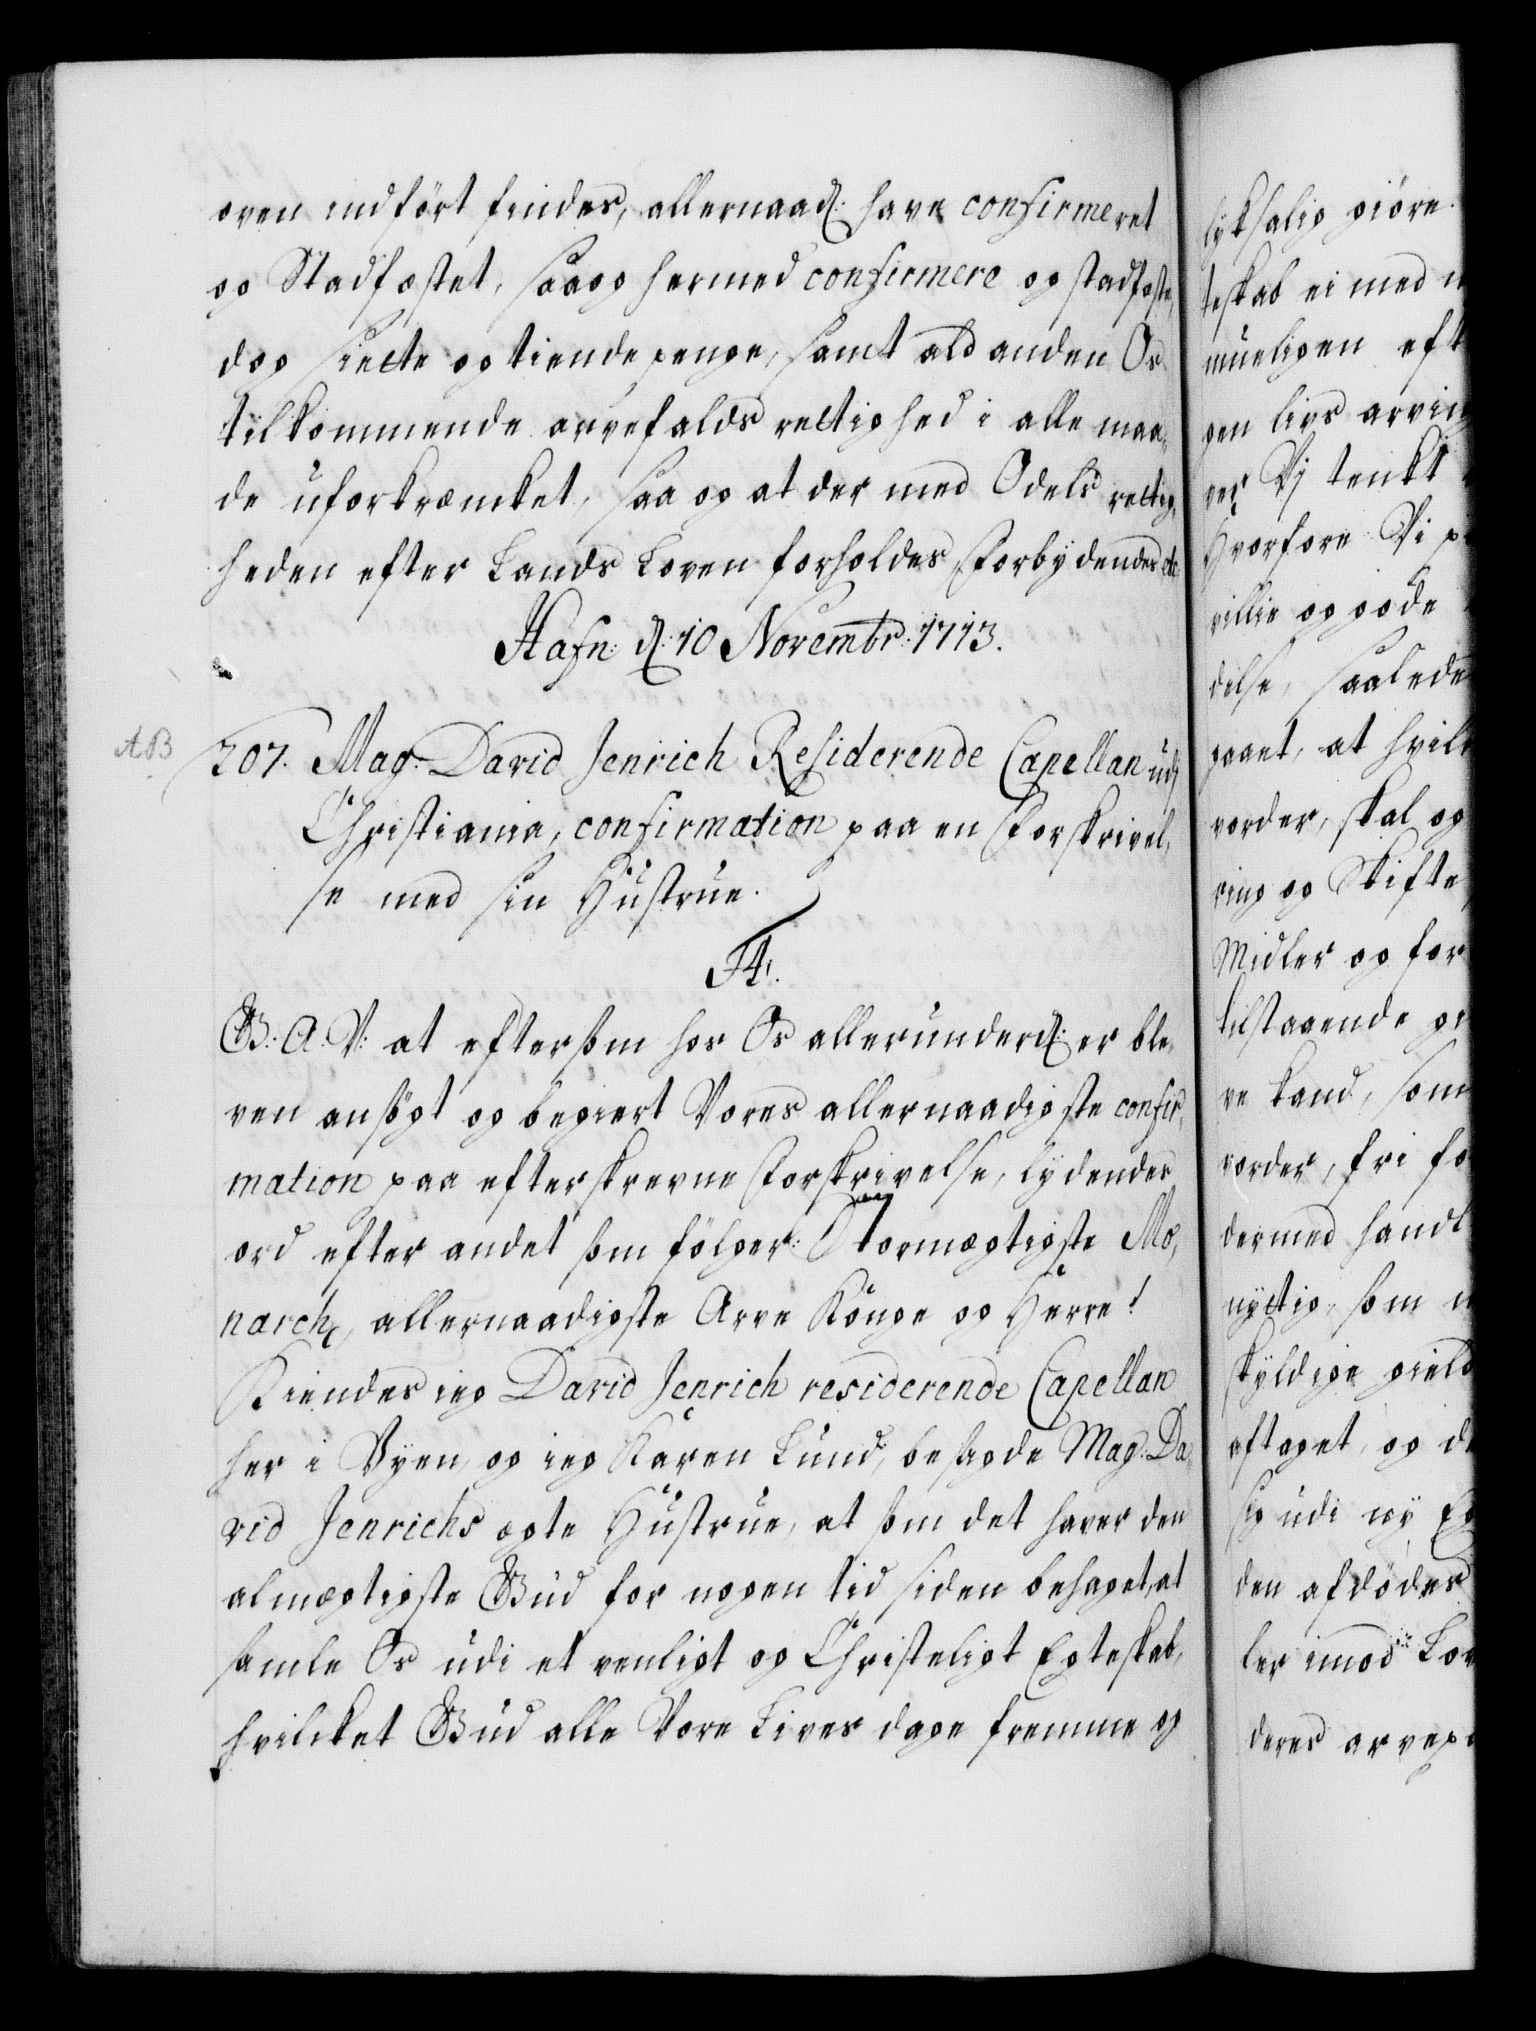 oven indført findes, allernaad: have confirmeret
og Stadfæstet, saa og hermed confirmere og stadfæste,
dog siette og tiende penge, samt ald anden Os
tilkommende arvefalds rettighed i alle maa,
de uforkræncket, saa og at der med Odels rettig,
heden efter Lands Loven forholdes Forbydendes etc
Hafn: d: 10 Novembr: 1713.
AB
207. Mag: David Jenrich Residerende Capellan udj
Christiania, confirmation paa en Forskrivel,
se med sin Hustrue.
F4.
G: A: V: at eftersom hos Os allerunderd: er ble,
ven ansøgt og begiert Vores allernaadigste confir,
mation paa efterskrevne Forskrivelse, lydendes
ord efter andet som følger: Stormægtigste Mo,
narch, allernaadigste Arve Konge og Herre!
Kiendes ieg David Jenrich residerende Capellan
her i Byen, og ieg Karen Lund, besagde Mag: Da,
vid Jenrichs ægte Hustrue, at som det haver den
almægtigste Gud for nogen tid siden behaget, at
samle Os udi et venligt og Christeligt Egteskab,
hvilcket Gud alle Vore Lives dage fremme og
lyksalig giøre.
teskab ei med
mueligen eft
gen livs arvin
ves Vj tenkt
Hvorfore Vi
villie og gode
delse, saalede
gaaet, at hvil
vorder, skal og
ring og Skifte
Midler og for
tilstaaende
ve kand, som
vorder, fri fo
dermed handl
nyttig, som
skyldige gield
aftaget, og d
sig udi ny Eg
den afdødes
ler imod Lov
deres arvep